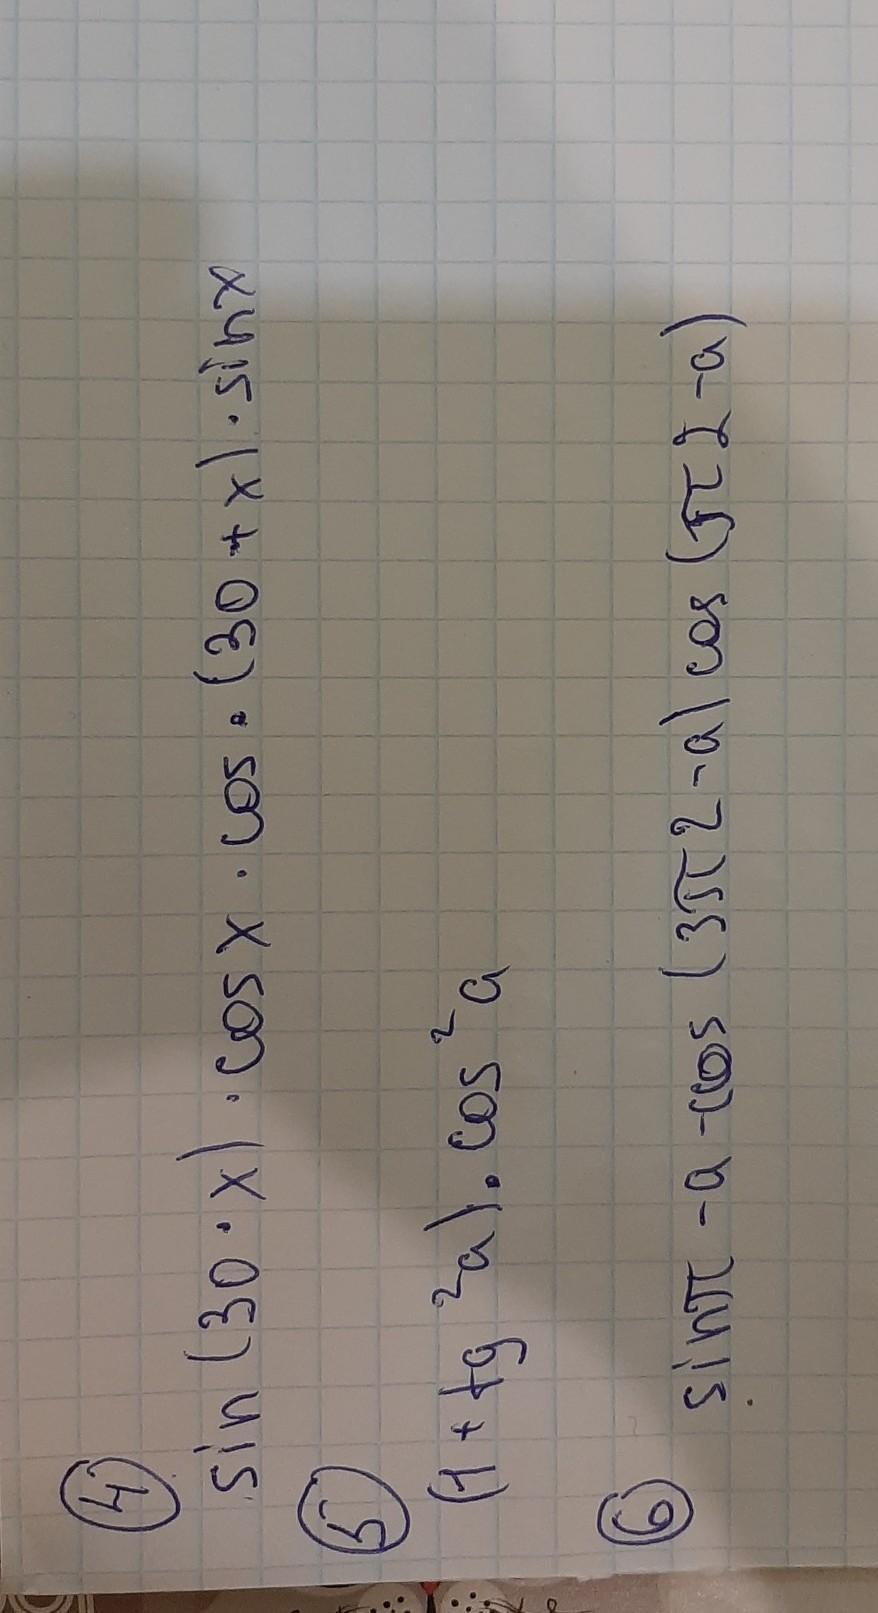 4
sin (30 · x) · cos x · cos · (30 + x) · sin x
5
(1 + tg ²a) · cos²a
6
sin π - a - cos (3π 2 - a) cos (π 2 - a)